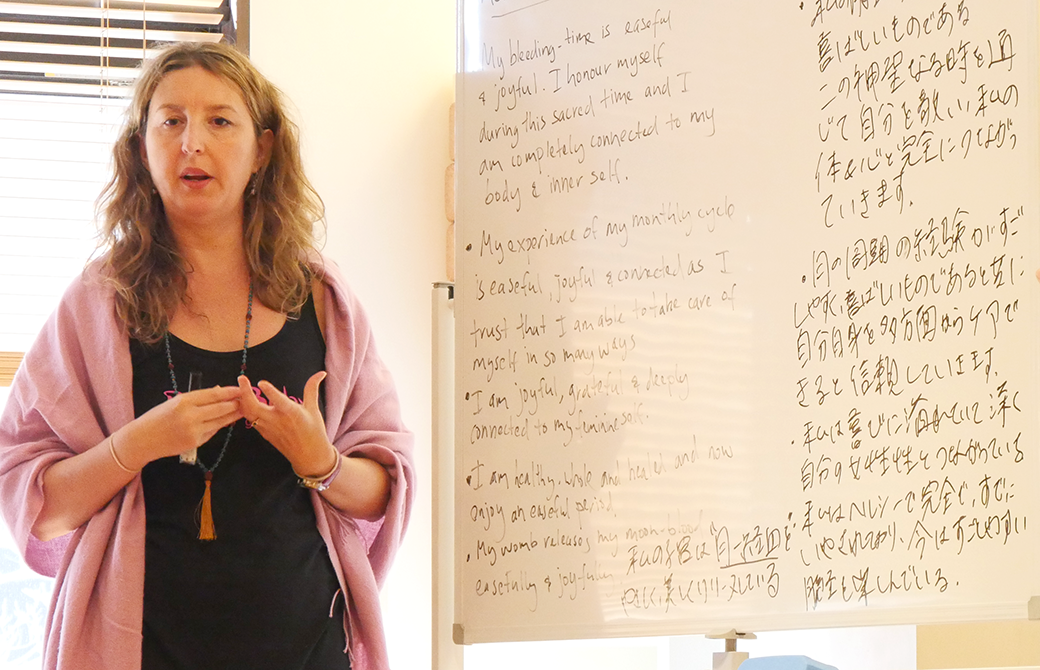 My bleeding-time is easeful
& joyful. I honour myself
during this sacred time and I
am completely connected to my
body & inner self.
• My experience of my monthly cycle
is easeful, joyful & connected as I
trust that I am able to take care of
myself in so many ways
• I am joyful, grateful & deeply
connected to my feminine self.
• I am healthy, whole and healed and now
enjoy an easeful period.
• My womb releases my moon-blood
easefully & joyfully.
私の子宮は"月一経血"を
やさしく、美しくリリースしている
喜ばしいものである
この神聖なる時を通
じて自分を敬い、私の
体&心と完全につながっ
ていきます。
・月の周期の経験がすご
しやすく、喜ばしいものであると共に
自分自身を多方面からケアで
きると信頼していきます。
・私は喜びに満ちていて深く
自分の女性性とつながっている
・私はヘルシーで完全で、すでに
いやされており、今はすごしやすい
を楽しんでいる。